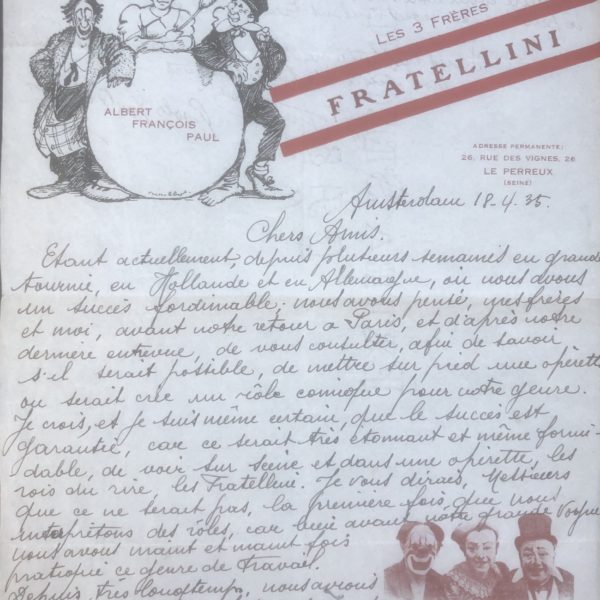 LES 3 FRÈRES
FRATELLINI
ALBERT
FRANÇOIS
PAUL
ADRESSE PERMANENTE:
26, RUE DES VIGNES, 26
LE PERREUX
(SEINE)
Amsterdam 18-4.35.
Chers Amis.
Etant actuellement, depuis plusieurs semaines en grande
tournié, en Hollande et en Allemagne, où nous avons
un succès fordinable; nous avons pensé, mes frères
et moi, avant notre retour a Paris, et d'après notre
dernière entrevue, de vous consulter, afin de savoir
s'il serait possible, de mettre sur pied une opérette
ou serait crée un rôle comique pour notre genre.
Je crois, et je suis même certain, que le succès est
garantie, car ce serait très étonnant et même formi-
dable, de voir sur scène et dans une opirette, les
rois du rire, les Fratellini. Je vous dirais, Messieurs
que ce ne serait pas, la première fois, que nous
interprétons des rôles, car déjà avant notre grande vogue
nous avons maint et maint fois
pratiqué ce genre de travail.
Depuis très longtemps, nous avions